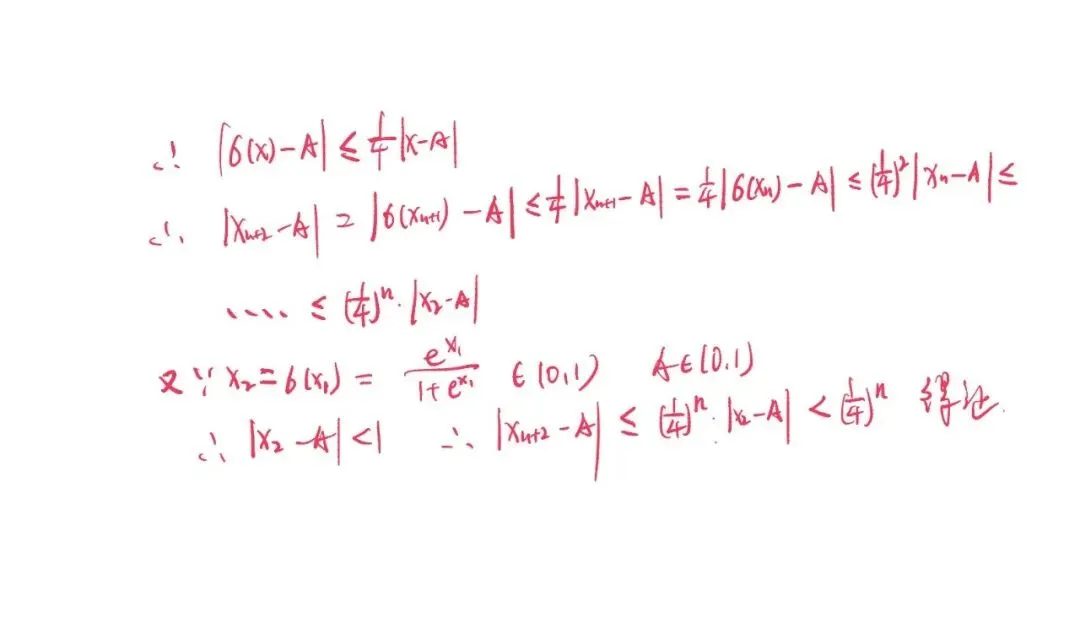 ∴ |σ(x)-A| ≤ 1/4|x-A|
∴ |xₙ₊₂-A| = |σ(xₙ₊₁)-A| ≤ 1/4|xₙ₊₁-A| = 1/4|σ(xₙ)-A| ≤ (1/4)²|xₙ-A| ≤
.... ≤ (1/4)ⁿ·|x₂-A|
又∵ x₂=σ(x₁) = e^x₁/(1+e^x₁) ∈(0,1) A∈(0,1)
∴ |x₂-A|<1 ∴ |xₙ₊₂-A| ≤ (1/4)ⁿ·|x₂-A| < (1/4)ⁿ 得证.